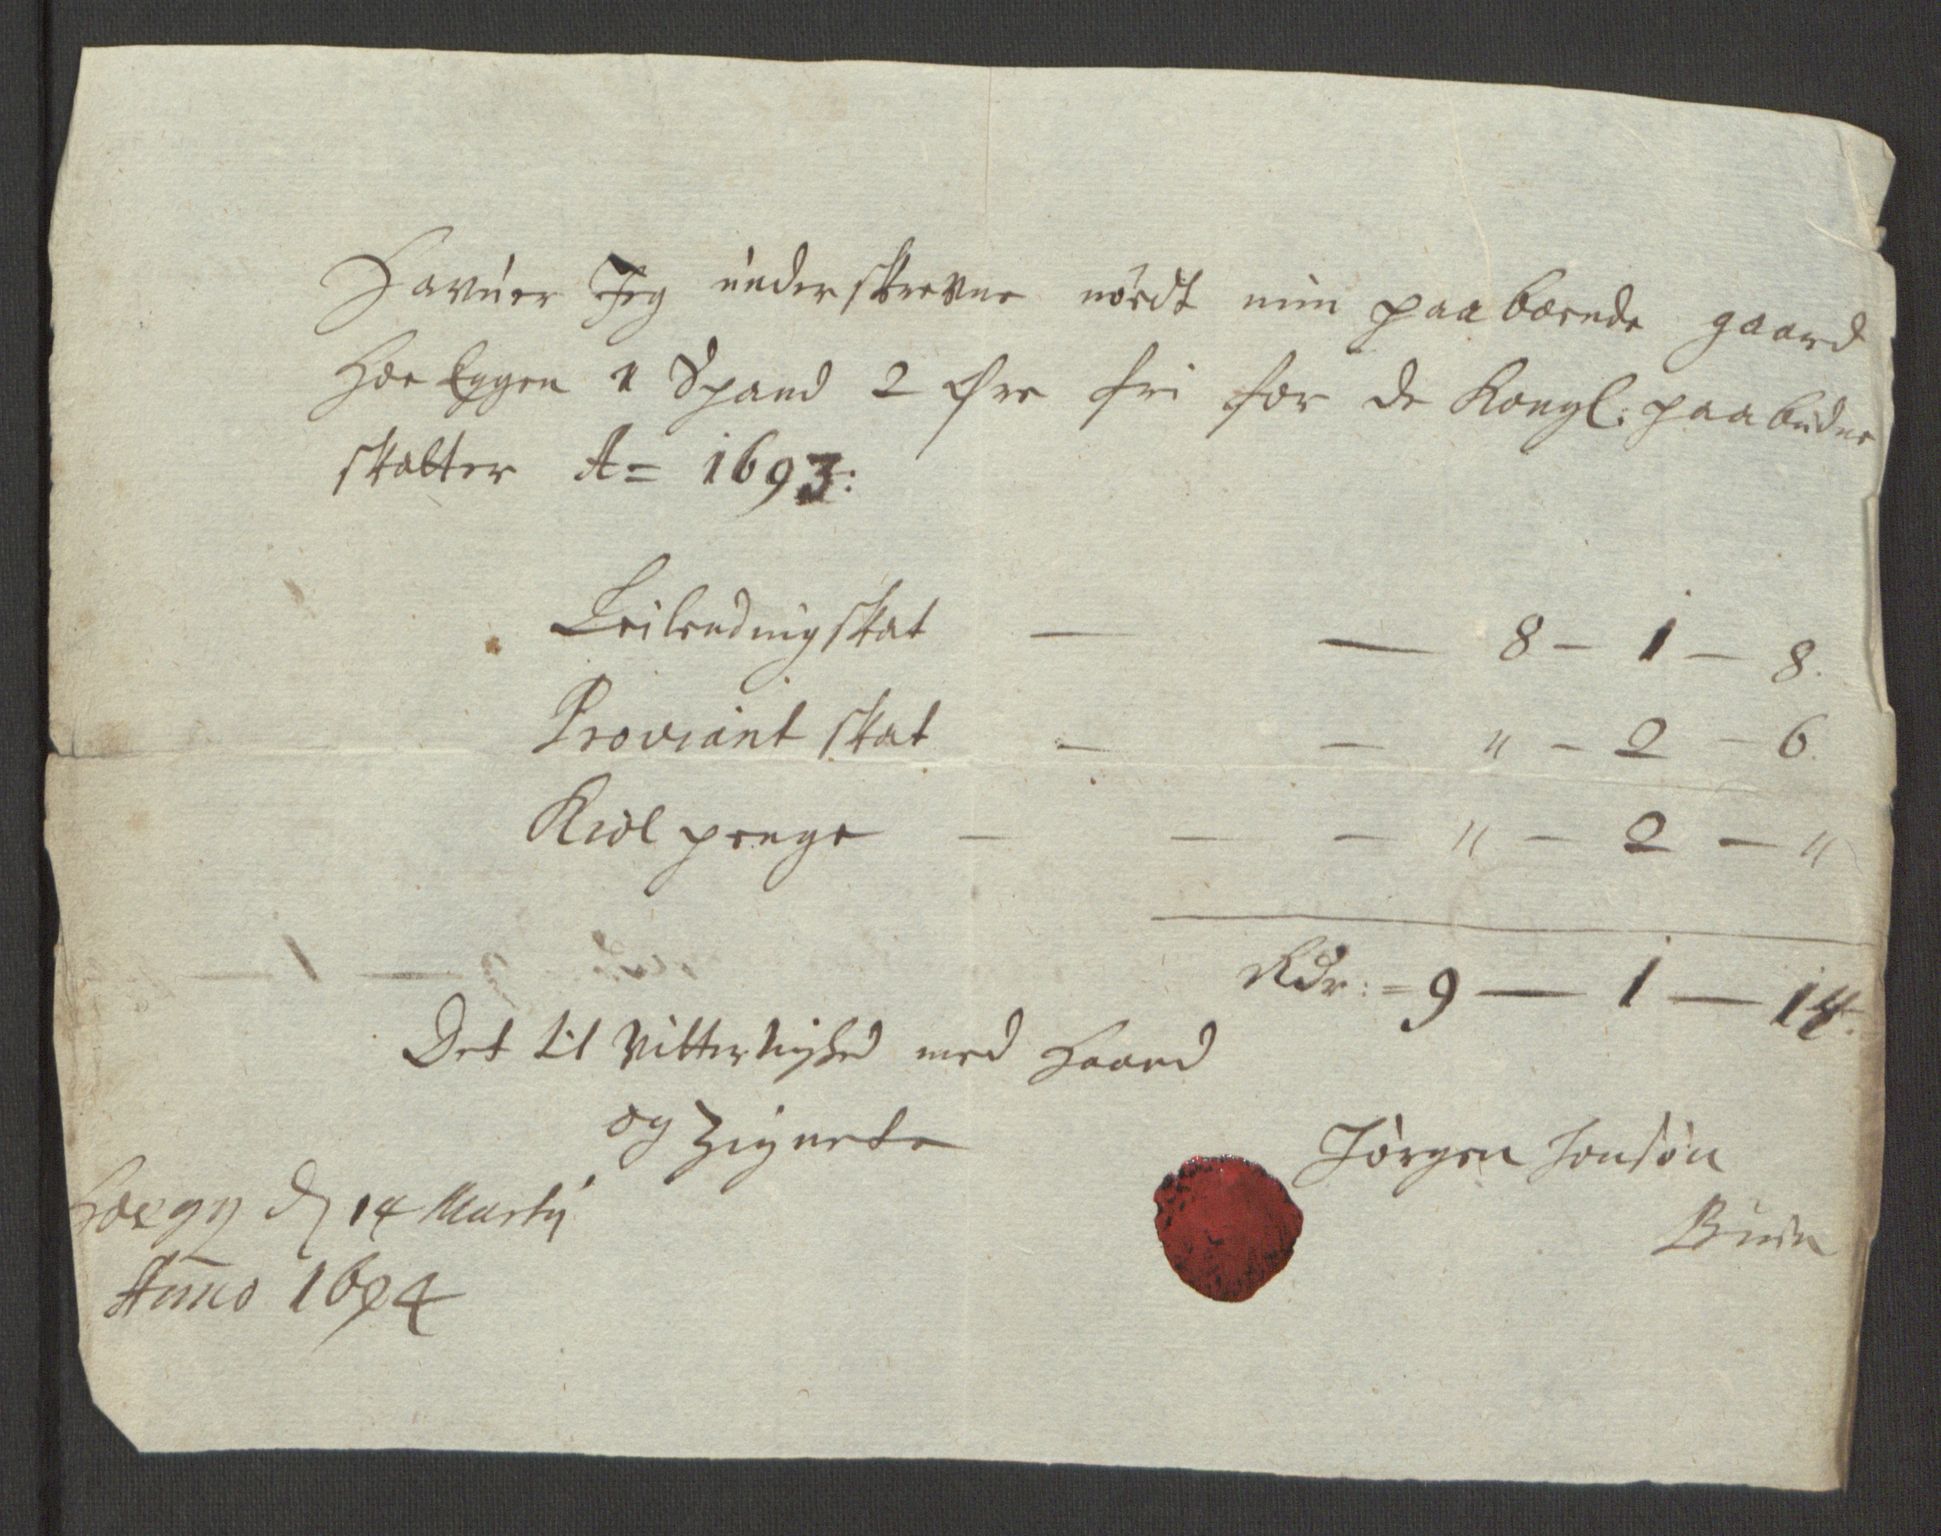 Hafuer Jeg underskrevne nödt min paaboende gaard
Hoe Eggen 1 Spand 2 Øre fri for de Kongl: paabudne
skatter A= 1693:
Leilendingskat — — 8 – 1 – 8.
Proviant skat – – " – 2 – 6.
Kiol penge – – – " – 2 – "
Rdr: = 9 — 1 — 14.
Det til Vitterlighed med Haand
og Zignete
Jörgen Jonsön
d 14 Martij
Anno 1694